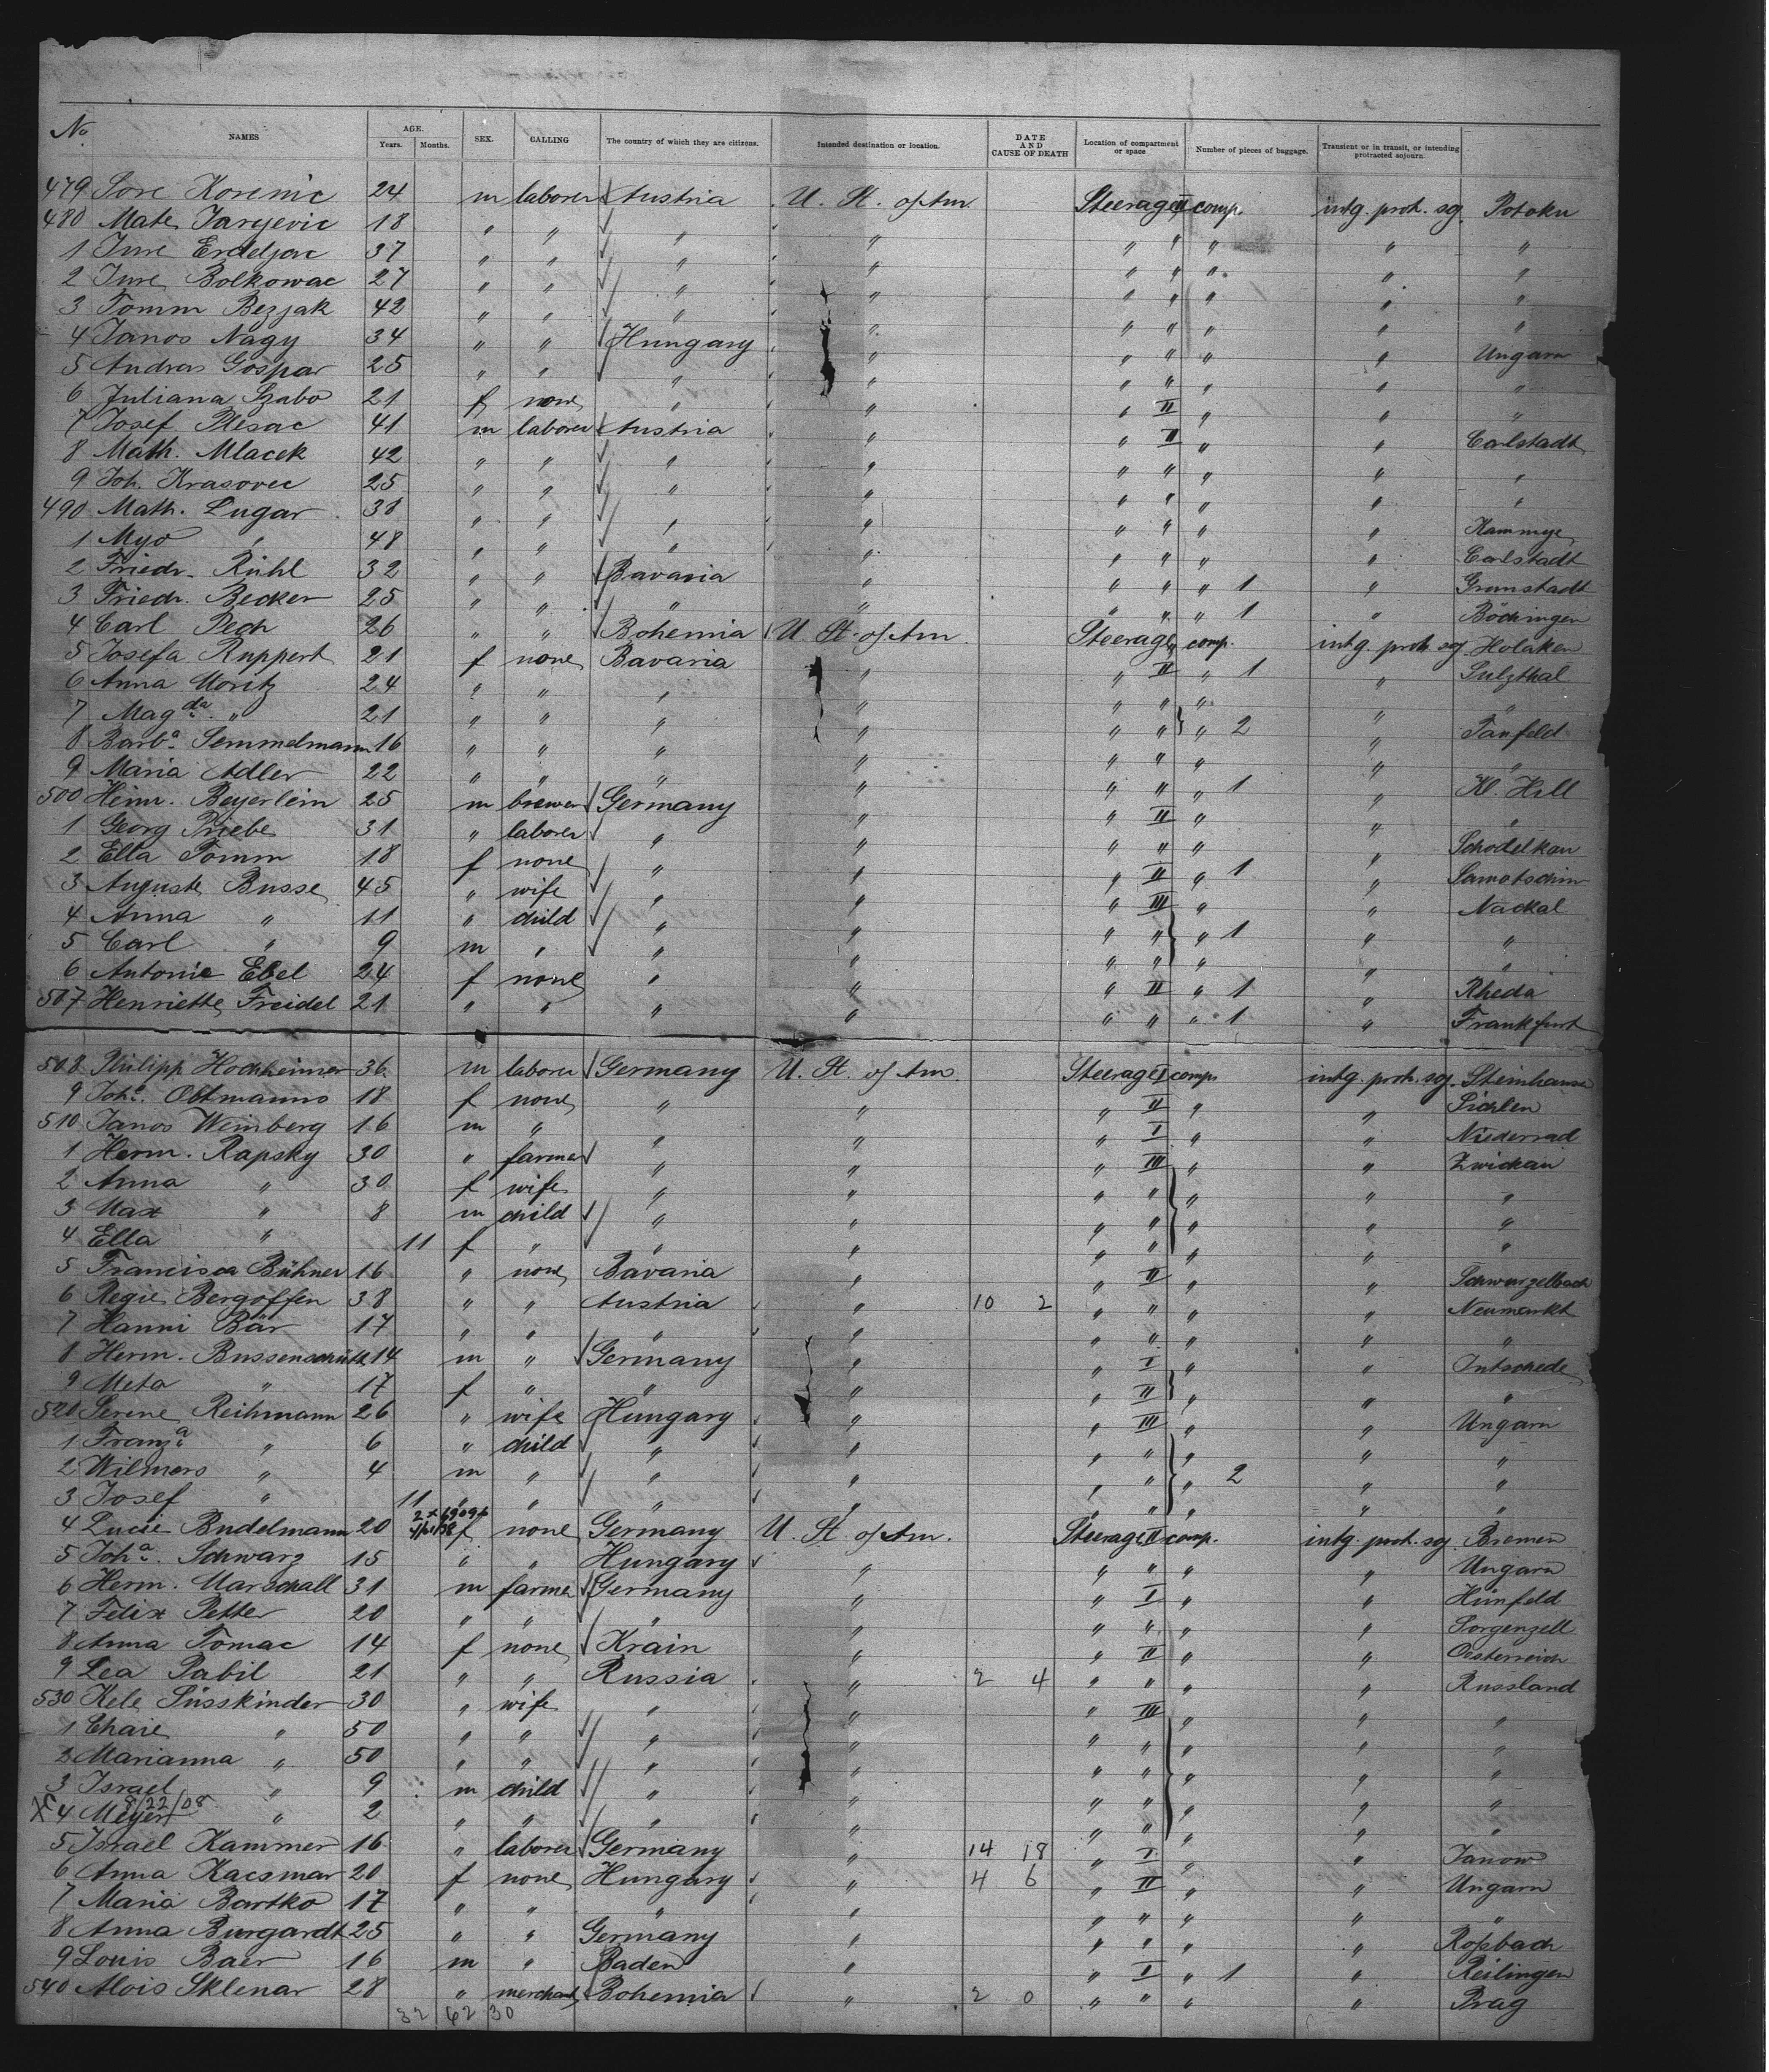 No. NAMES AGE. Years. Months. SEX. CALLING The country of which they are citizens. Intended destination or location. DATE AND CAUSE OF DEATH Location of compartment or space Number of pieces of baggage. Transient or in transit, or intending protracted sojourn.
479 Sore Korenic 24 m laborer Austria U. St. of Am. Steerage II comp. intg. prot. soj. Potoku
480 Mate Jaryevic 18 " " " " " " " " "
1 Jure Erdeljac 37 " " " " " " " " "
2 Jure Bolkowac 27 " " " " " " " " "
3 Tomm Bezjak 42 " " " " " " " " "
4 Janos Nagy 34 " " Hungary " " " " " Ungarn
5 Andras Gospar 25 " " " " " " " " "
6 Juliana Szabo 21 f none " " " II " " "
7 Josef Plesac 41 m laborer Austria " " II " " Carlstadt
8 Math. Mlacek 42 " " " " " " " " "
9 Joh. Krasovec 25 " " " " " " " " "
490 Math. Lugar 38 " " " " " " " "
1 Myo " 48 " " " " " " " " Carlstadt
2 Friedr. Rühl 32 " " Bavaria " " " " 1 " Grunstadt
3 Friedr. Becker 25 " " " " " " " 1 " Böchingen
4 Carl Pech 26 " " Bohemia U. St. of Am. Steerage " comp. intg. prot. soj. Holaken
5 Josefa Ruppert 21 f none Bavaria " " II " 1 " Sulzthal
6 Anna Moritz 24 " " " " " " " " "
7 Magda. " 21 " " " " " " " 2 " Tanfeld
8 Barba. Semmelmann 16 " " " " " " " " "
9 Maria Adler 22 " " " " " " " 1 " Kl. Hall
500 Heinr. Beyerlein 25 m brewer Germany " " II " " "
1 Georg Priebe 31 " laborer " " " " " " Schodelkau
2 Ella Tomm 18 f none " " " II " 1 " Samotschin
3 Auguste Busse 45 " wife " " " III " " Nackal
4 Anna " 11 " child " " " " " 1 " "
5 Carl " 9 m " " " " " " " "
6 Antonie Ebel 24 f none " " " II " 1 " Rheda
507 Henriette Freidel 21 " " " " " " " 1 " Frankfurt
508 Philipp Hochheimer 36 m laborer Germany U. St. of Am. Steerage I comp. intg. prot. soj. Steinhausen
9 Joha. Obtmanns 18 f none " " " II " " Sichlen
510 Janos Weinberg 16 m " " " " I " " Niederrad
1 Herm. Rapsky 30 " farmer " " " III " " Zwickau
2 Anna " 30 f wife " " " " " " "
3 Max " 8 m child " " " " " " "
4 Ella " 11 f " " " " " " " "
5 Francisca Bühner 16 " none Bavaria " " II " " Schwarzellbach
6 Regie Bergoffen 38 " " Austria " 10 2 " " " " Neumarkt
7 Hanni Bär 17 " " " " " " " " "
8 Herm. Bussenschütt 14 m " Germany " " I " " Intschede
9 Meta " 17 f " " " " II " " "
520 Serene Reihmann 26 " wife Hungary " " III " " Ungarn
1 Franza. " 6 " child " " " " " " "
2 Wilmers " 4 m " " " " " " 2 " "
3 Josef " 11 " " " " " " " " "
4 Lucie Budelmann 20 f none Germany U. St. of Am. Steerage II comp. intg. prot. soj. Bremen
5 Joha. Schwarz 15 " " Hungary " " " " " Ungarn
6 Herm. Marschall 31 m farmer Germany " " I " " Hünfeld
7 Felix Petter 20 " " " " " " " " Sorgenzell
8 Anna Tomac 14 f none Krain " " II " " Oesterreich
9 Lea Pabil 21 " " Russia " 2 4 " " " " Russland
530 Kele Süsskinder 30 " wife " " " III " " "
1 Chaie " 50 " " " " " " " " "
2 Marianna " 50 " " " " " " " " "
3 Israel " 9 m child " " " " " " "
8/22/08
X 4 Meyer " 2 " " " " " " " " "
5 Israel Kammer 16 " laborer Germany " 14 18 " I " " Janow
6 Anna Kacsmar 20 f none Hungary " 4 6 " II " " Ungarn
7 Maria Bartko 17 " " " " " " " " "
8 Anna Burgardt 25 " " Germany " " " " " Roßbach
9 Louis Baer 16 m " Baden " " I " 1 " Reilingen
540 Alois Sklenar 28 " merchant Bohemia " 2 0 " " " " Prag
32 62 30